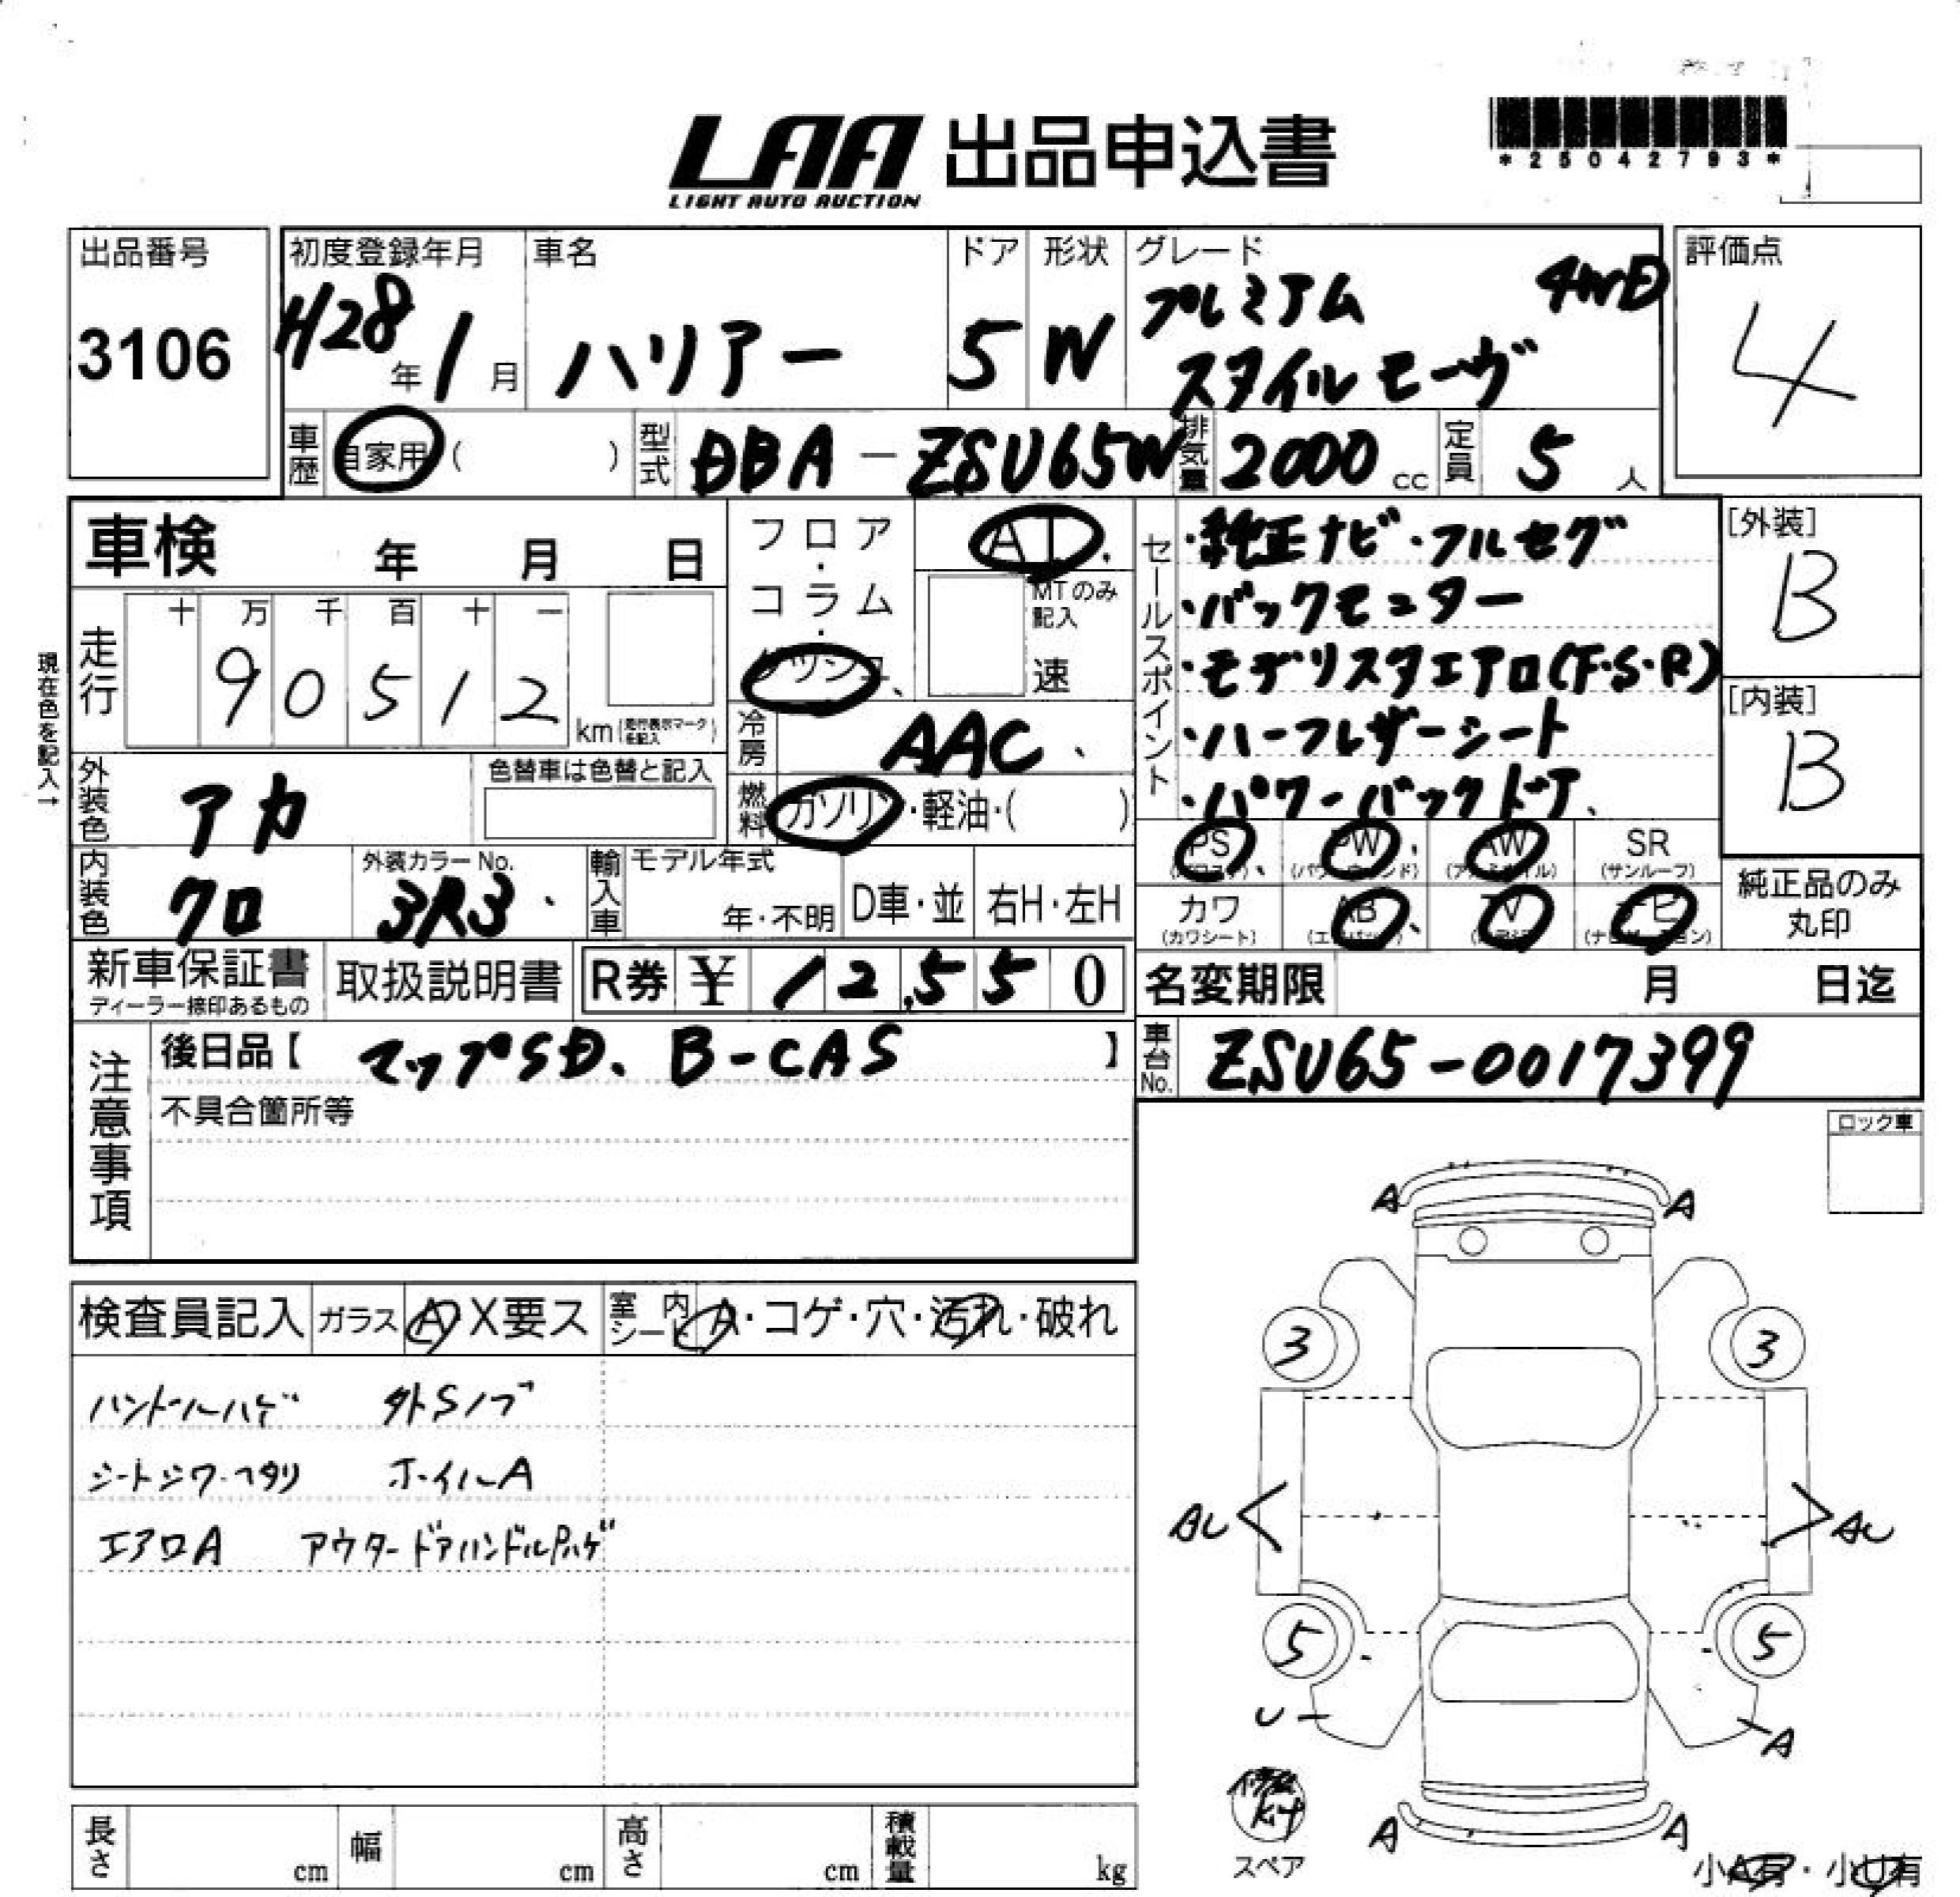 LAA 出品申込書
LIGHT AUTO AUCTION
*25042793*
出品番号
3106
初度登録年月
H28年1月
車名
ハリアー
ドア
5
形状
W
グレード
プレミアム 4WD
スタイルモーヴ
評価点
4
車歴 自家用 ( )
型式 DBA-ZSU65W
排気量 2000 cc
定員 5 人
車検 年 月 日
フロア・コラム・
AT
MTのみ記入
速
現在色を記入→
走行
十 万 千 百 十 一
9 0 5 1 2
km(走行表示マークを記入)
冷房 AAC
外装色 アカ
色替車は色替と記入
燃料 ガソリン・軽油・( )
内装色 クロ
外装カラーNo.
3R3
輸入車
モデル年式
年・不明
D車・並
右H・左H
セールスポイント
・純正ナビ・フルセグ
・バックモニター
・モデリスタエアロ(F・S・R)
・ハーフレザーシート
・パワーバックドア
[外装]
B
[内装]
B
PS PW AW SR
(サンルーフ)
カワ AB TV ナビ
(カワシート)
純正品のみ
丸印
新車保証書
ディーラー捺印あるもの
取扱説明書
R券 ¥ 12,550
名変期限 月 日迄
車台No. ZSU65-0017399
注意事項
後日品【 マップSD、B-CAS 】
不具合箇所等
ロック車
検査員記入
ガラス A X要ス
室内シート A・コゲ・穴・汚れ・破れ
ハンドルハゲ 外Sノブ
シートシワ・ヘタリ ホイルA
エアロA アウタードアハンドルPハゲ
A A
3 3
AU AU
5 5
U A
A A
修理kit
スペア
小A有・小U有
長さ cm
幅 cm
高さ cm
積載量 kg